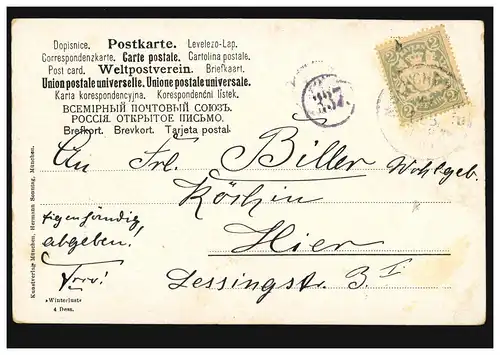 Dopisnice. Postkarte. Levelezo-Lap.
Correspondenzkarte. Carte postale. Cartolina postale.
Post card. Weltpostverein. Briefkaart.
Union postale universelle. Unione postale universale.
Karta korespondencyjna. Korespondenčni listek.
ВСЕМІРНЫЙ ПОЧТОВЫЙ СОЮЗЪ.
РОССІЯ. ОТКРЫТОЕ ПИСЬМО.
Brefkort. Brevkort. Tarjeta postal.
2 2
2 2
237
An Frl. Biller Wohlgeb.
Köchin
Eigenhändig
abgeben!
Hier
Lessingstr. 3 I
Kunstverlag München, Hermann Sonntag, München.
»Winterlust«
4 Dess.